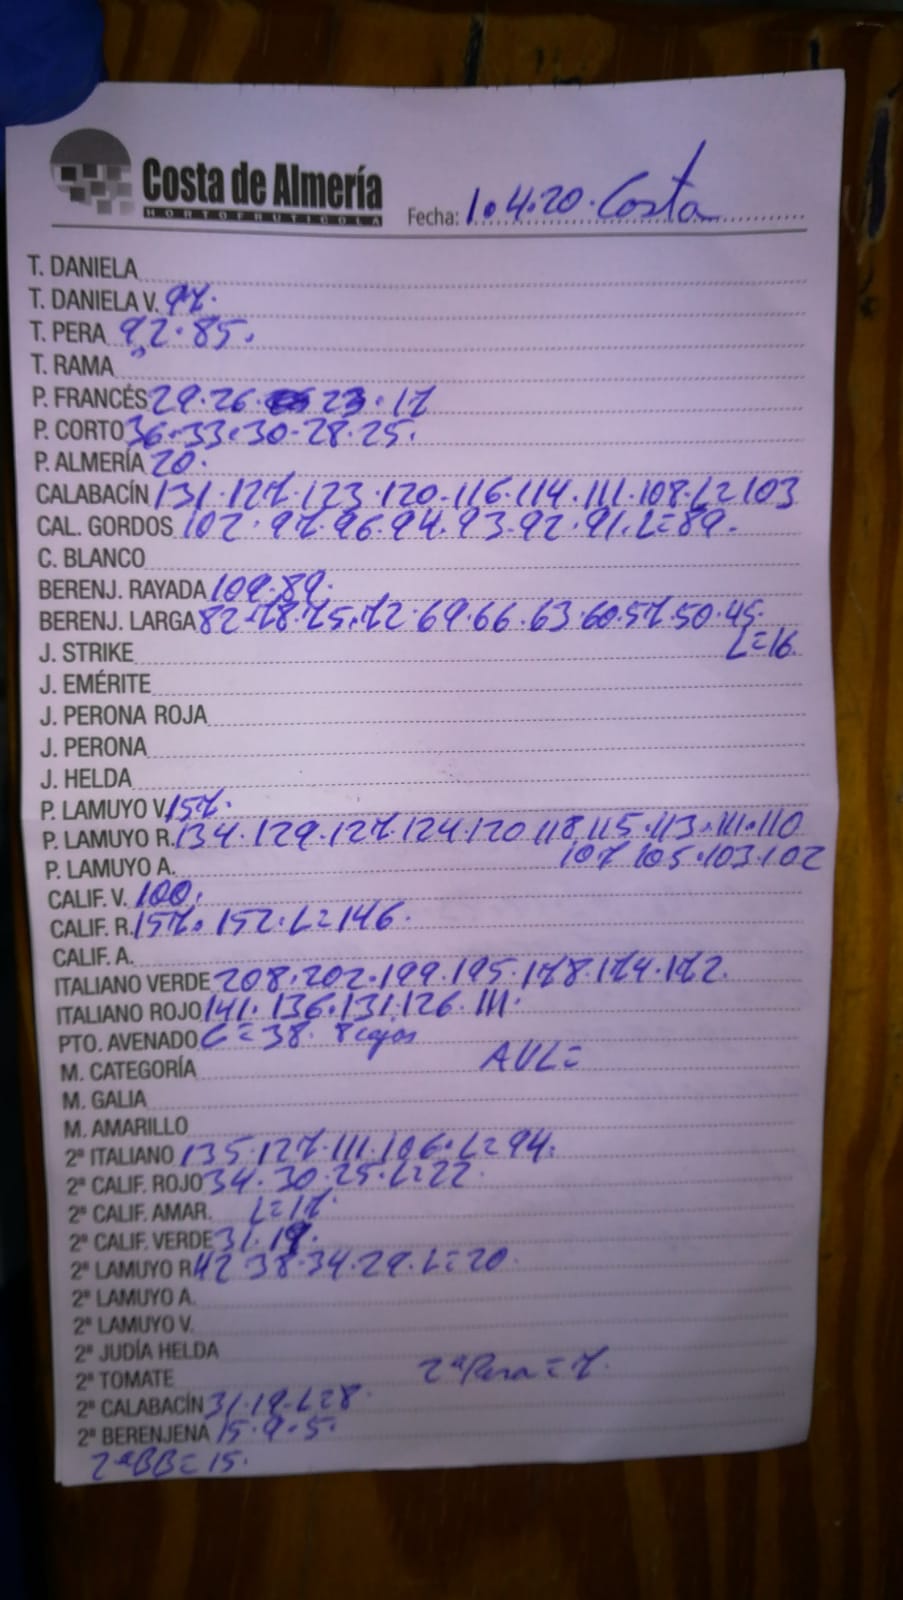 Costa de Almería
HORTOFRUTICOLA
Fecha: 1.4.20. Costa
T. DANIELA
T. DANIELA V. 97.
T. PERA 92.85.
T. RAMA
P. FRANCÉS 29.26. 23.17
P. CORTO 36.33.30.28.25.
P. ALMERÍA 20.
CALABACÍN 131.127.123.120.116.114.111.108.L=103
CAL. GORDOS 102.97.96.94.93.92.91.L=89.
C. BLANCO
BERENJ. RAYADA 109.89.
BERENJ. LARGA 82.78.75.72.69.66.63.60.57.50.45.
J. STRIKE L=16.
J. EMÉRITE
J. PERONA ROJA
J. PERONA
J. HELDA
P. LAMUYO V. 157.
P. LAMUYO R. 134.129.127.124.120 118 115.113.111.110
P. LAMUYO A. 107 105.103.102
CALIF. V. 100.
CALIF. R. 157.152.L=146.
CALIF. A.
ITALIANO VERDE 208.202.199.195.178.174.172.
ITALIANO ROJO 141.136.131.126.111.
PTO. AVENADO C=38. 8 cajas
M. CATEGORÍA AVL=
M. GALIA
M. AMARILLO
2ª ITALIANO 135.127.111.106.L=94.
2ª CALIF. ROJO 34.30.25.L=22.
2ª CALIF. AMAR. L=17.
2ª CALIF. VERDE 31.19.
2ª LAMUYO R. 42 38.34.29.L=20.
2ª LAMUYO A.
2ª LAMUYO V.
2ª JUDÍA HELDA
2ª TOMATE 2ª Pera=7.
2ª CALABACÍN 31.19.L=8.
2ª BERENJENA 15.9.5.
2ª BB=15.